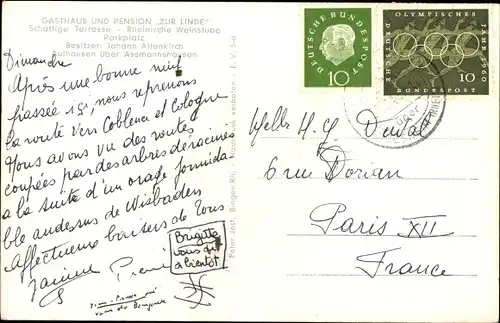 GASTHAUS UND PENSION „ZUR LINDE"
Schattige Terrasse - Rheinische Weinstube
Parkplatz
Besitzer: Johann Altenkirch
Aulhausen über Assmannshausen
Dimanche
Après une bonne nuit
passée ici, nous reprenons
la route vers Coblence et Cologne
Nous avons vu des routes
coupées par des arbres déracinés
à la suite d'un orage formida
ble au dessus de Wisbaden
Affectueux baisers de tous
Janine Pierre
Brigitte
vous dit
à bientôt
Peter Josf. Bingen Rh.
DEUTSCHE BUNDESPOST
10
OLYMPISCHES
JAHR 1960
DEUTSCHE
BUNDESPOST
10
über
Melle H. G. Deval
6 rue Dorian
Paris XII
France